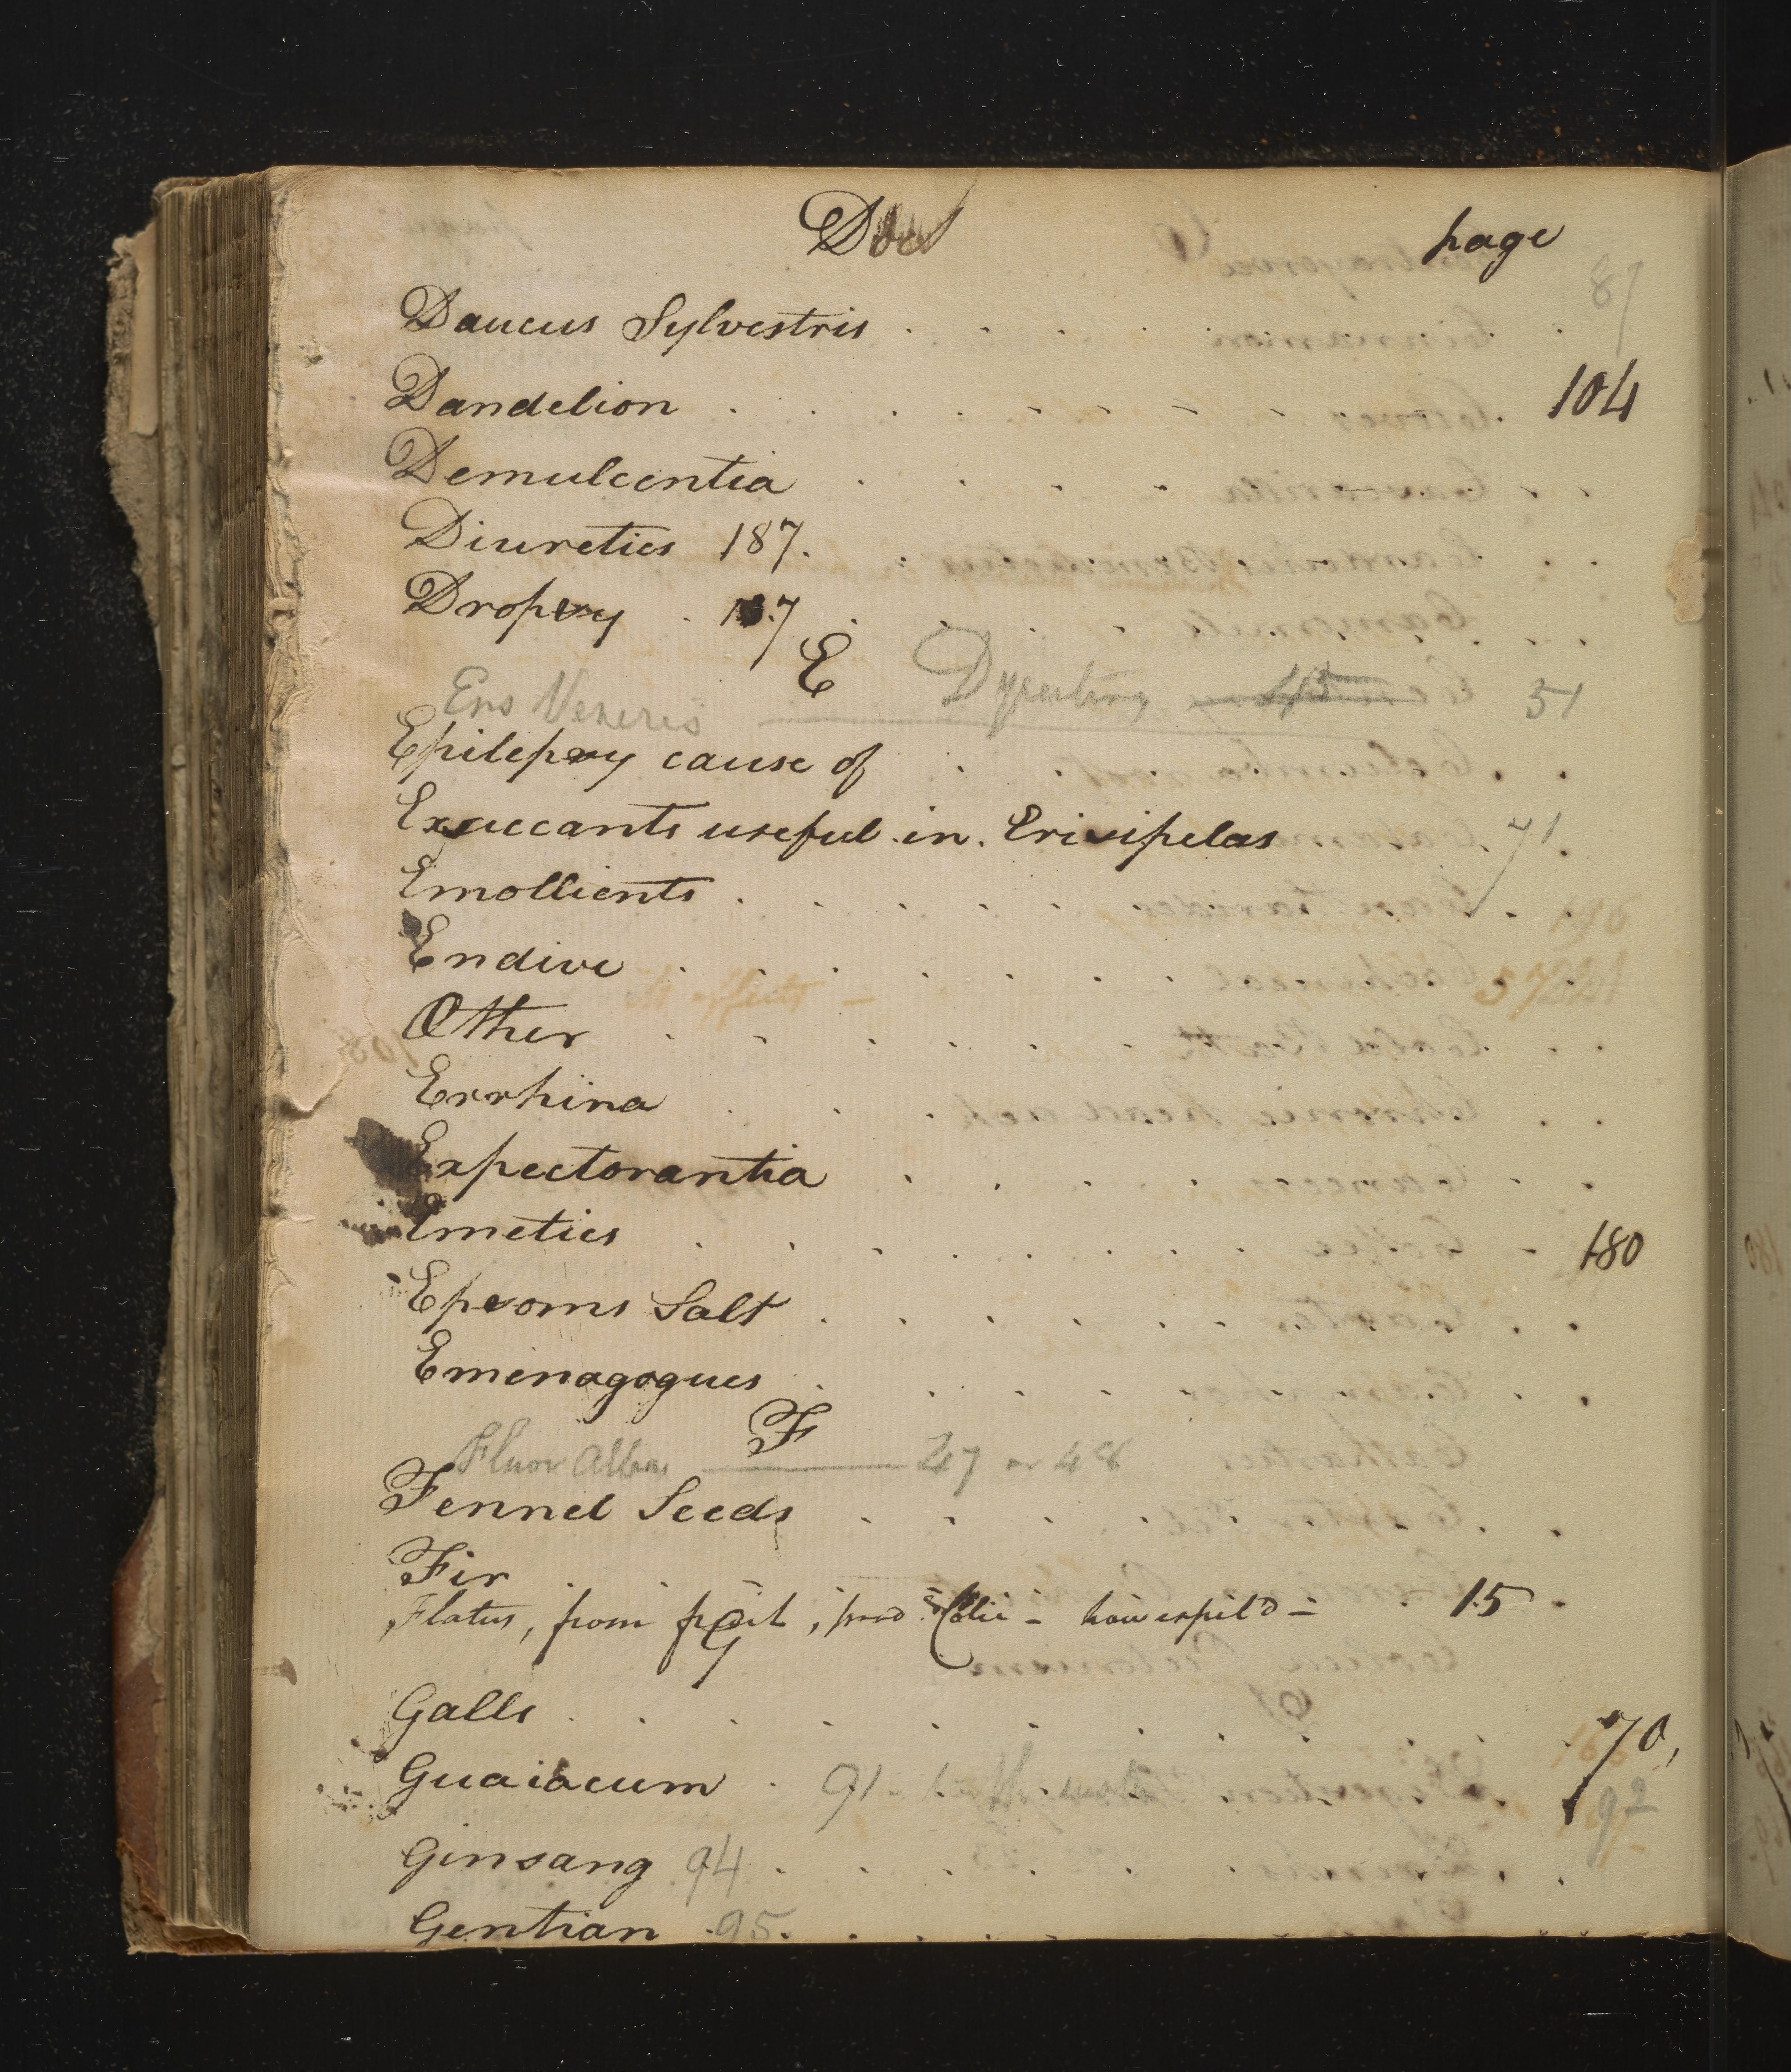 D page
Daucus Sylvestris . . . . . . 87
Dandelion . . . . . . . . . 104
Demulcentia . . . . .
Diuretics 187.
Dropsy . 187 . . . .
E Dysentery 45 51
Ens Veneris
Epilepsy cause of . . .
Exsiccants useful in Erisipelas 71.
Emollients . . . . .
Endive . . . . . . .
its effects –
Æther . . . . . .
Errhina . . .
Expectorantia . . . . .
Emetics . . . . . . . 180
Epsoms Salt . . . . . .
Emenagogues . . . . .
F
Fluor Albus 47 or 48
Fennel Seeds . . . . .
Fir
Flatus, from , prod Colic – how expel'd – 15.
G
Galls . . . . . . . . . 70,
Guaiacum . 91 92
Ginsang 94 . . . . . .
Gentian .95. . . . . .